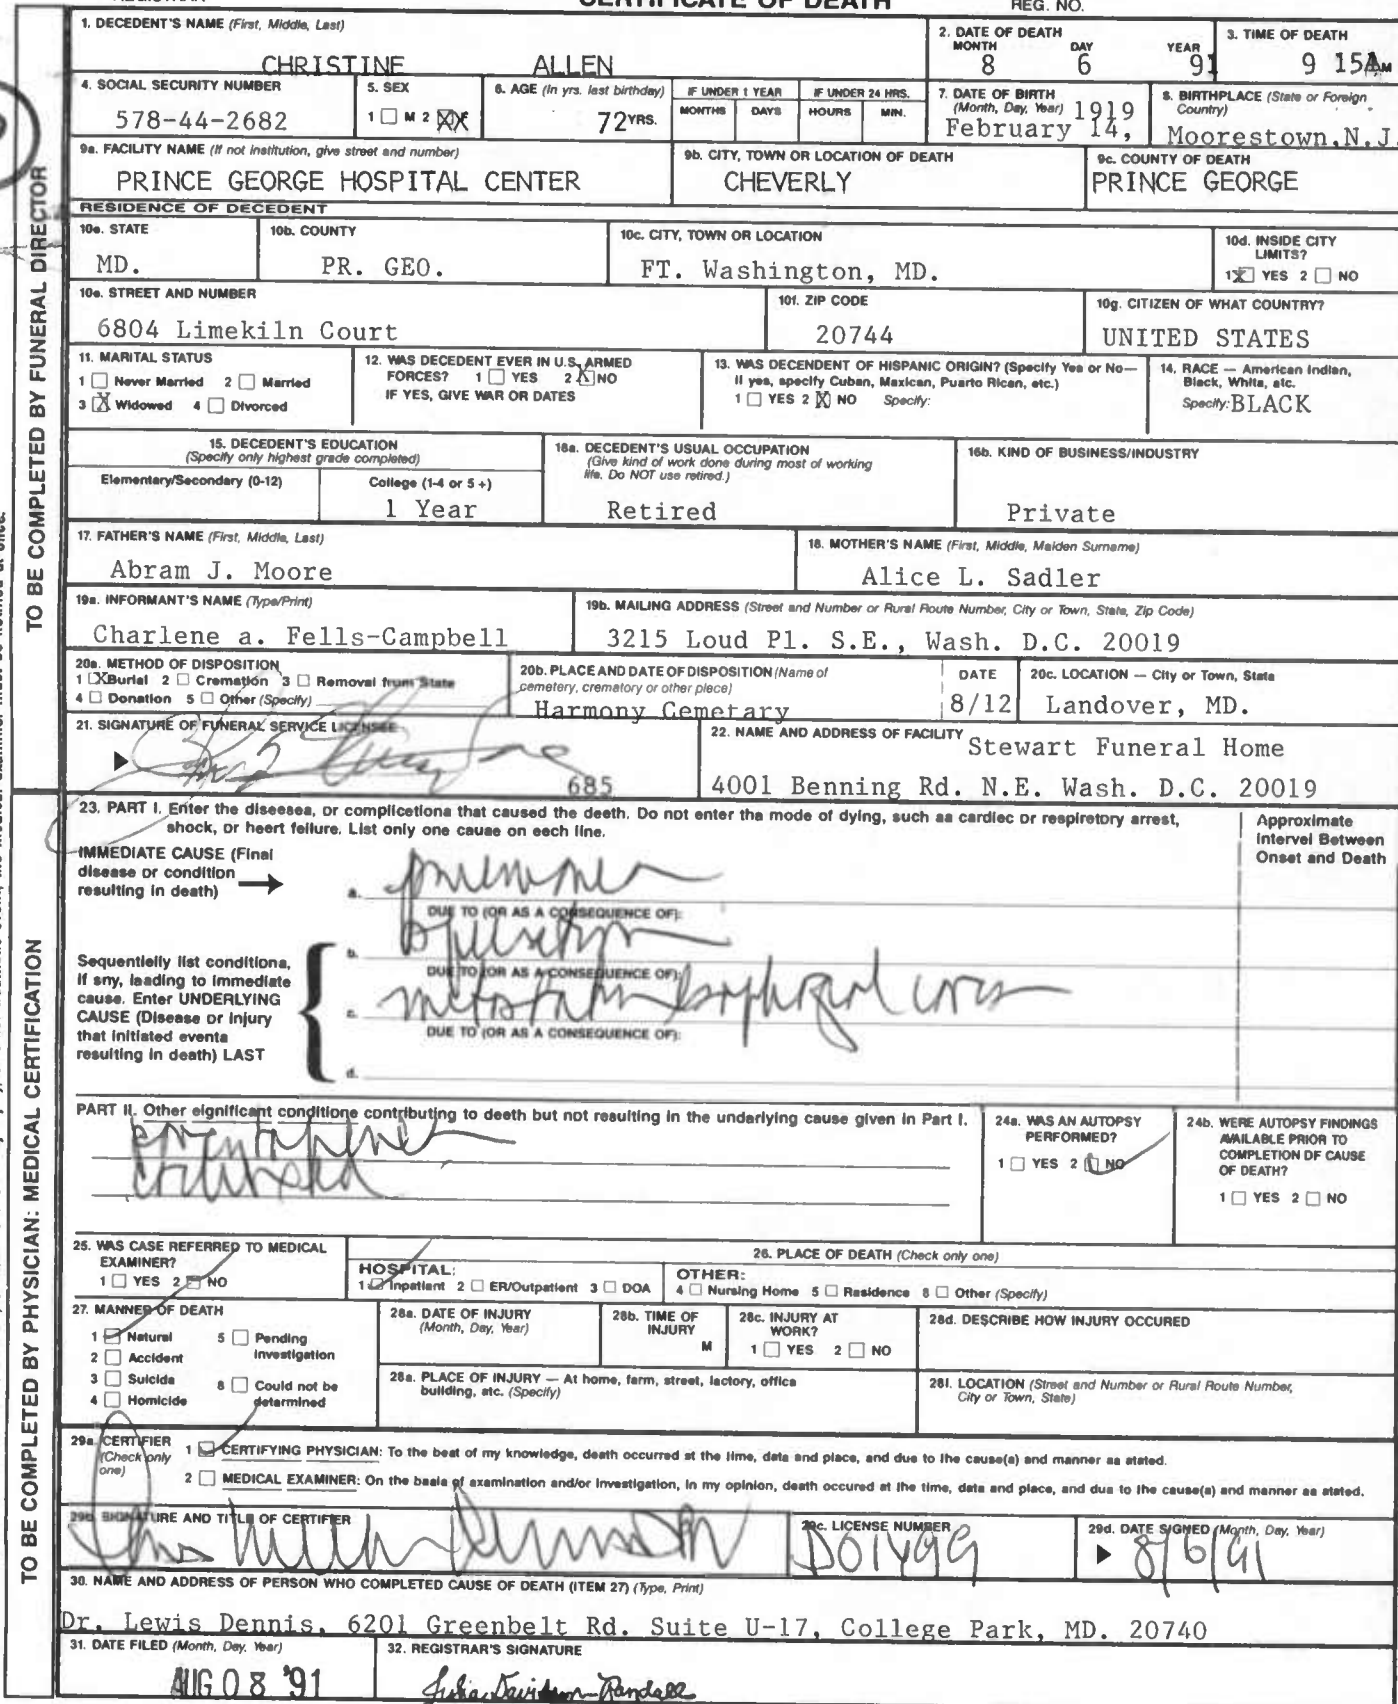 CERTIFICATE OF DEATH
REG. NO.
1. DECEDENT'S NAME (First, Middle, Last)
CHRISTINE ALLEN
2. DATE OF DEATH
MONTH DAY YEAR
8 6 91
3. TIME OF DEATH
9 15AM
4. SOCIAL SECURITY NUMBER
578-44-2682
5. SEX
1 ☐ M 2 XX
6. AGE (In yrs. last birthday)
72YRS.
IF UNDER 1 YEAR
MONTHS DAYS
IF UNDER 24 HRS.
HOURS MIN.
7. DATE OF BIRTH
(Month, Day, Year) 1919
February 14,
8. BIRTHPLACE (State or Foreign
Country)
Moorestown, N.J.
9a. FACILITY NAME (If not institution, give street and number)
PRINCE GEORGE HOSPITAL CENTER
9b. CITY, TOWN OR LOCATION OF DEATH
CHEVERLY
9c. COUNTY OF DEATH
PRINCE GEORGE
RESIDENCE OF DECEDENT
10a. STATE
MD.
10b. COUNTY
PR. GEO.
10c. CITY, TOWN OR LOCATION
FT. Washington, MD.
10d. INSIDE CITY
LIMITS?
1 X YES 2 ☐ NO
10e. STREET AND NUMBER
6804 Limekiln Court
10f. ZIP CODE
20744
10g. CITIZEN OF WHAT COUNTRY?
UNITED STATES
11. MARITAL STATUS
1 ☐ Never Married 2 ☐ Married
3 X Widowed 4 ☐ Divorced
12. WAS DECEDENT EVER IN U.S. ARMED
FORCES? 1 ☐ YES 2 X NO
IF YES, GIVE WAR OR DATES
13. WAS DECENDENT OF HISPANIC ORIGIN? (Specify Yes or No—
If yes, specify Cuban, Mexican, Puerto Rican, etc.)
1 ☐ YES 2 X NO Specify:
14. RACE — American Indian,
Black, White, etc.
Specify: BLACK
15. DECEDENT'S EDUCATION
(Specify only highest grade completed)
Elementary/Secondary (0-12)
College (1-4 or 5 +)
1 Year
16a. DECEDENT'S USUAL OCCUPATION
(Give kind of work done during most of working
life. Do NOT use retired.)
Retired
16b. KIND OF BUSINESS/INDUSTRY
Private
17. FATHER'S NAME (First, Middle, Last)
Abram J. Moore
18. MOTHER'S NAME (First, Middle, Maiden Surname)
Alice L. Sadler
19a. INFORMANT'S NAME (Type/Print)
Charlene a. Fells-Campbell
19b. MAILING ADDRESS (Street and Number or Rural Route Number, City or Town, State, Zip Code)
3215 Loud Pl. S.E., Wash. D.C. 20019
20a. METHOD OF DISPOSITION
1 X Burial 2 ☐ Cremation 3 ☐ Removal from State
4 ☐ Donation 5 ☐ Other (Specify)
20b. PLACE AND DATE OF DISPOSITION (Name of
cemetery, crematory or other place)
Harmony Cemetary
DATE
8/12
20c. LOCATION — City or Town, State
Landover, MD.
21. SIGNATURE OF FUNERAL SERVICE LICENSEE
685
22. NAME AND ADDRESS OF FACILITY
Stewart Funeral Home
4001 Benning Rd. N.E. Wash. D.C. 20019
23. PART I. Enter the diseases, or complications that caused the death. Do not enter the mode of dying, such as cardiac or respiratory arrest,
shock, or heart failure. List only one cause on each line.
Approximate
Interval Between
Onset and Death
IMMEDIATE CAUSE (Final
disease or condition
resulting in death)
a. pneumonia
DUE TO (OR AS A CONSEQUENCE OF):
b.
DUE TO (OR AS A CONSEQUENCE OF):
c. metastatic esophageal cancer
DUE TO (OR AS A CONSEQUENCE OF):
d.
Sequentially list conditions,
if any, leading to immediate
cause. Enter UNDERLYING
CAUSE (Disease or injury
that initiated events
resulting in death) LAST
PART II. Other significant conditions contributing to death but not resulting in the underlying cause given in Part I.
24a. WAS AN AUTOPSY
PERFORMED?
1 ☐ YES 2 ☑ NO
24b. WERE AUTOPSY FINDINGS
AVAILABLE PRIOR TO
COMPLETION OF CAUSE
OF DEATH?
1 ☐ YES 2 ☐ NO
25. WAS CASE REFERRED TO MEDICAL
EXAMINER?
1 ☐ YES 2 ☑ NO
26. PLACE OF DEATH (Check only one)
HOSPITAL:
1 ☑ Inpatient 2 ☐ ER/Outpatient 3 ☐ DOA
OTHER:
4 ☐ Nursing Home 5 ☐ Residence 6 ☐ Other (Specify)
27. MANNER OF DEATH
1 ☑ Natural 5 ☐ Pending
Investigation
2 ☐ Accident
3 ☐ Suicide 6 ☐ Could not be
4 ☐ Homicide determined
28a. DATE OF INJURY
(Month, Day, Year)
28b. TIME OF
INJURY
M
28c. INJURY AT
WORK?
1 ☐ YES 2 ☐ NO
28d. DESCRIBE HOW INJURY OCCURED
28e. PLACE OF INJURY — At home, farm, street, factory, office
building, etc. (Specify)
28f. LOCATION (Street and Number or Rural Route Number,
City or Town, State)
29a. CERTIFIER
(Check only
one)
1 ☑ CERTIFYING PHYSICIAN: To the best of my knowledge, death occurred at the time, date and place, and due to the cause(s) and manner as stated.
2 ☐ MEDICAL EXAMINER: On the basis of examination and/or investigation, in my opinion, death occured at the time, data and place, and due to the cause(s) and manner as stated.
29b. SIGNATURE AND TITLE OF CERTIFIER
29c. LICENSE NUMBER
D01499
29d. DATE SIGNED (Month, Day, Year)
8/6/91
30. NAME AND ADDRESS OF PERSON WHO COMPLETED CAUSE OF DEATH (ITEM 27) (Type, Print)
Dr. Lewis Dennis, 6201 Greenbelt Rd. Suite U-17, College Park, MD. 20740
31. DATE FILED (Month, Day, Year)
AUG 08 '91
32. REGISTRAR'S SIGNATURE
Julia Davidson-Randall
TO BE COMPLETED BY FUNERAL DIRECTOR
TO BE COMPLETED BY PHYSICIAN: MEDICAL CERTIFICATION